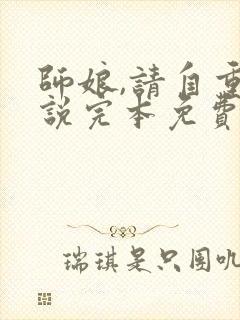 師娘,請自重
說完本免費
瑞琪是只圈叽